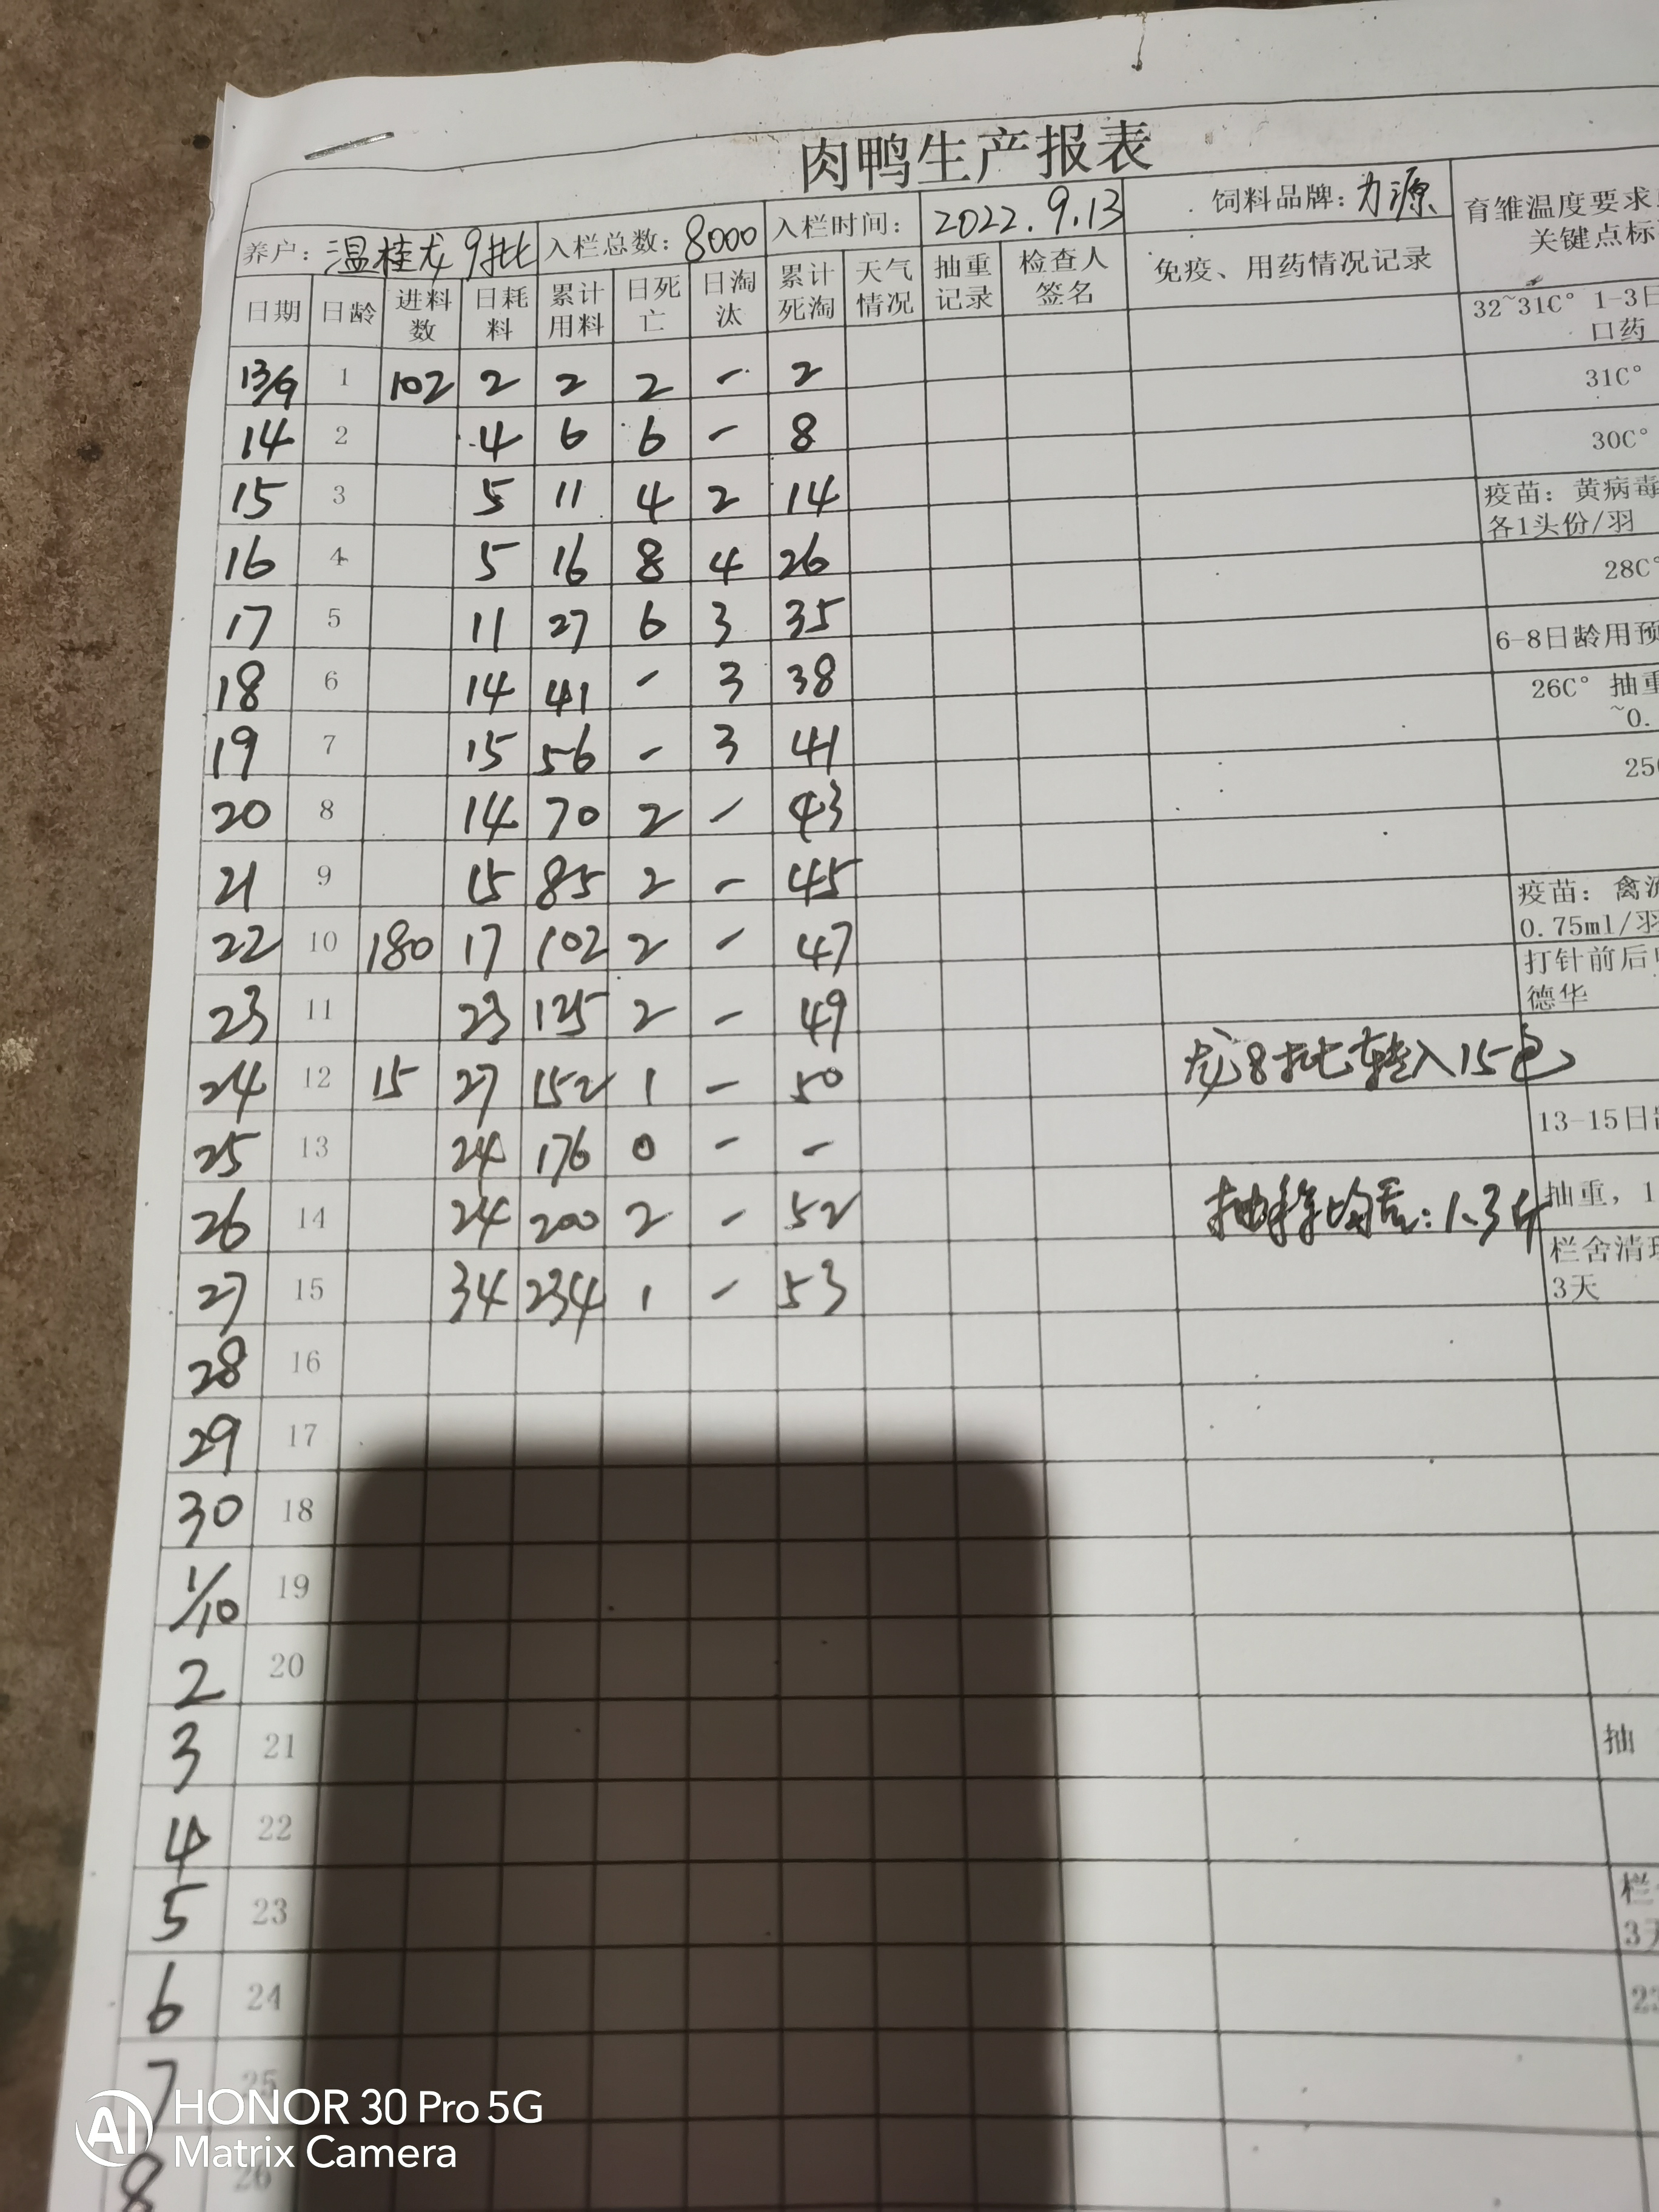 肉鸭生产报表
养户：温桂龙9批 入栏总数：8000 入栏时间： 2022.9.13 饲料品牌：力源 育雏温度要求
关键点标
日期 日龄 进料数 日耗料 累计用料 日死亡 日淘汰 累计死淘 天气情况 抽重记录 检查人签名 免疫、用药情况记录
32~31C° 1-3日
口药
13/9 1 102 2 2 2 - 2 31C°
14 2 4 6 6 - 8 30C°
15 3 5 11 4 2 14 疫苗：黄病毒
各1头份/羽
16 4 5 16 8 4 26 28C°
17 5 11 27 6 3 35 6-8日龄用预
18 6 14 41 - 3 38 26C° 抽重
~0.
19 7 15 56 - 3 41 25
20 8 14 70 2 - 43
21 9 15 85 2 - 45 疫苗：禽流
0.75ml/羽
22 10 180 17 102 2 - 47 打针前后
德华
23 11 23 125 2 - 49
24 12 15 27 152 1 - 50 龙8批转入15包
25 13 24 176 0 - - 13-15日
26 14 24 200 2 - 52 抽称均重：1.3斤 抽重，1
27 15 34 234 1 - 53 栏舍清
3天
28 16
29 17
30 18
1/10 19
2 20
3 21 抽
4 22
5 23 栏
3天
6 24
7 25
8 26
HONOR 30 Pro 5G
Matrix Camera
AI